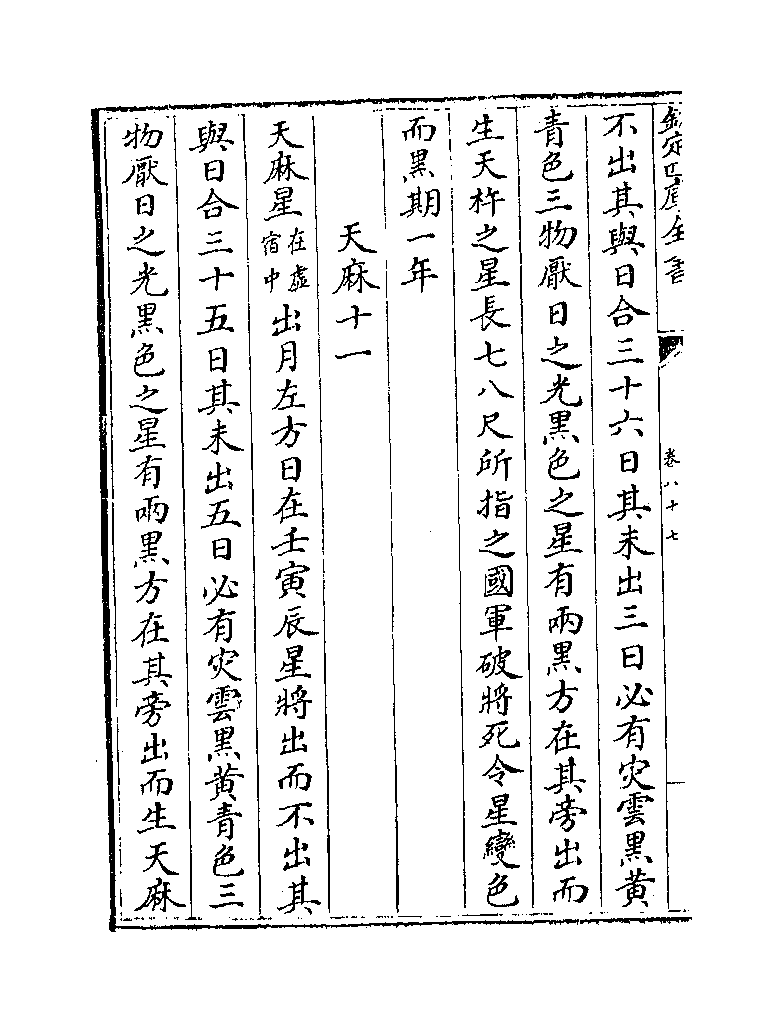 欽定四庫全書
卷八十七
不出其與日合三十六日其未出三日必有灾雲黑黄
青色三物厭日之光黑色之星有兩黑方在其旁出而
生天杵之星長七八尺所指之國軍破將死令星變色
而黑期一年
天麻十一
天麻星在虛宿中出月左方日在壬寅辰星將出而不出其
與日合三十五日其未出五日必有灾雲黑黄青色三
物厭日之光黑色之星有兩黑方在其旁出而生天麻